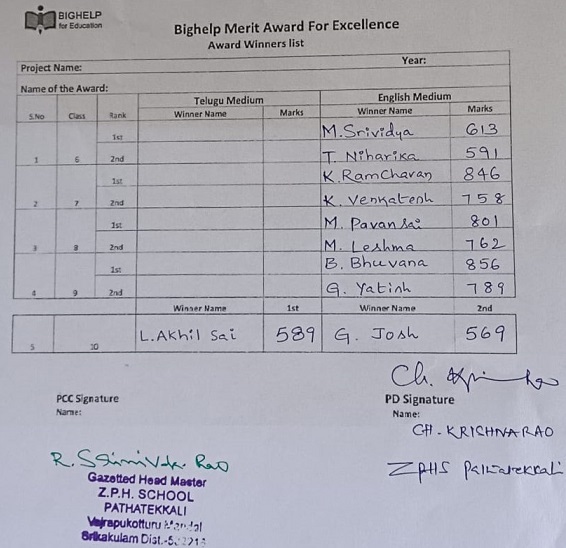 BIGHELP
for Education
Bighelp Merit Award For Excellence
Award Winners list
Project Name: Year:
Name of the Award:
Telugu Medium English Medium
S.No Class Rank Winner Name Marks Winner Name Marks
1st M.Srividya 613
1 6 2nd T. Niharika 591
1st K.RamCharan 846
2 7 2nd K. Venkatesh 758
1st M. Pavan Sai 801
3 8 2nd M. Leshma 762
1st B. Bhuvana 856
4 9 2nd G. Yatish 789
Winner Name 1st Winner Name 2nd
5 10 L.Akhil Sai 589 G. Josh 569
PCC Signature PD Signature
Name: Name:
CH. KRISHNARAO
ZPHS
Gazetted Head Master
Z.P.H. SCHOOL
PATHATEKKALI
Vajrapukotturu Mandal
Srikakulam Dist.-